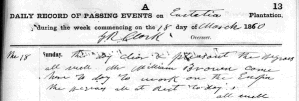 A 13
DAILY RECORD OF PASSING EVENTS on Eustatia Plantation,
during the week commencing on the 18 day of March 1860
G R Clark Overseer.
Mar 18 Sunday. This day clear & pleasant the Negroes
all well Mr William Brown came
here to day to work on the Engin
the hands all at rest to day
all well